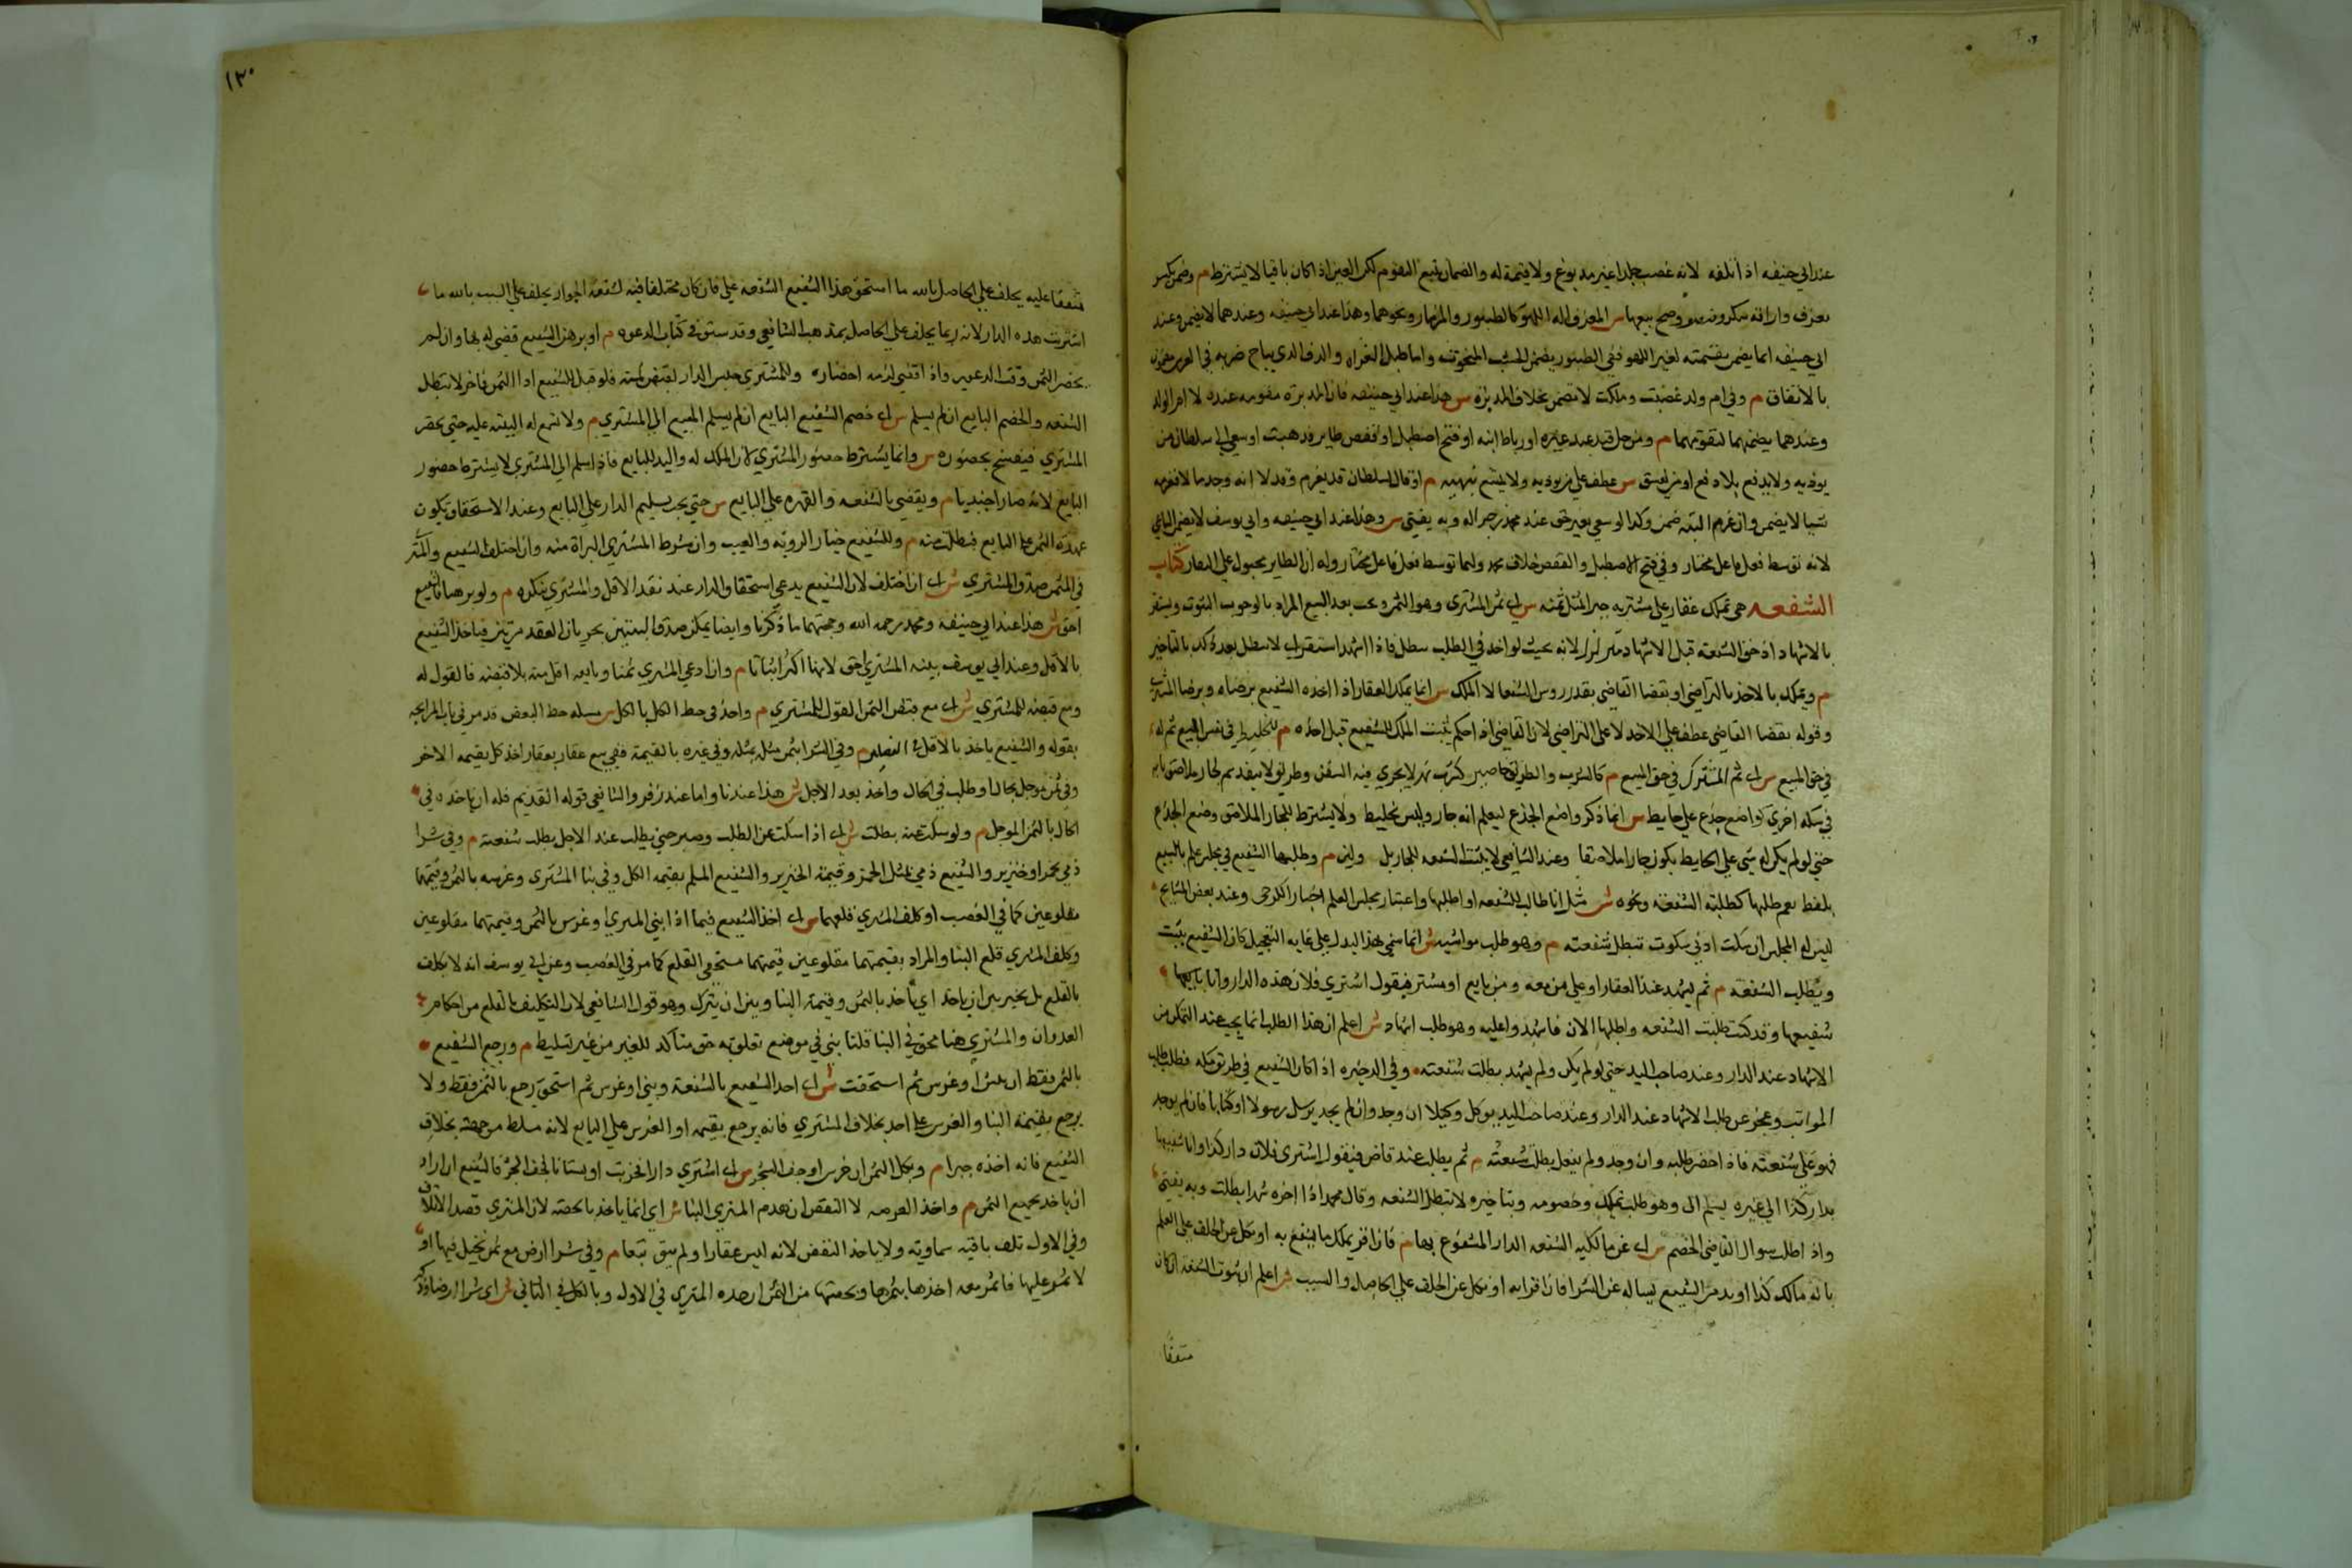 عند ابي حنيفه اذا اتلفه لانه غصب جلدا غير مدبوغ ولا قيمة له والضمان يتبع التقوم لكن العين اذا كان باقيا لا يشترط م وضمن بكسر
معزف واراقة سكر ومنصف وصح بيعها ش المعزف اله اللهو كالطنبور والمزمار ونحوهما وهذا عند ابي حنيفه وعندهما لا يضمن وعند
ابي حنيفه انما يضمن بقيمته لغير اللهو ففي الطنبور يضمن الخشب المنحوت واما طبل الغزاه والدف الذي يباح ضربه في العرس مضمون
بالاتفاق م وفي ام ولد غصبت وهلكت لا يضمن بخلاف المدبره ش هذا عند ابي حنيفه فان المدبره متقومه عنده لا ام الولد
وعندهما يضمنهما لتقومهما م ومن حل قيد عبد غيره او رباط دابته او فتح اصطبل او قفص طاير فذهبت او سعي الي سلطان من
يوذيه ولا يدفع بلا دفع او من يفسق ش عطف علي من يوذيه ولا يمتنع بنهيه م او قال لسلطان قد يغرم وقد لا انه وجد مالا فغرمه
شيا لا يضمن وان غرم البته ضمن وكذا لو سعي بغير حق عند محمد زجرا له وبه يفتي ش وهذا عند ابي حنيفه وابي يوسف لا يضمن الساعي
لانه توسط فعل فاعل مختار وفي فتح الاصطبل والقفص خلاف محمد ولهما توسط فعل فاعل مختار وله ان الطاير مجبول علي النفار كتاب
الشفعه هي تملك عقار علي مشتريه جبرا بمثل ثمنه ش اي ثمن المشتري وهو الثمن وتجب بعد البيع المراد بالوجوب الثبوت وتستقر
بالاشهاد اذ حق الشفعه قبل الاشهاد متزلزل لانه بحيث لو اخر في الطلب تبطل فاذا اشهد استقر اي لا تبطل بعد ذلك بالتاخير
م ويتملك بالاخذ بالتراضي او بقضا القاضي بقدر روس الشفعا لا الملك ش انما يملك العقار اذا اخذه الشفيع برضاه وبرضا المشتري
وقوله بقضا القاضي عطف علي الاخذ لا علي التراضي لان القاضي اذا حكم يثبت الملك للشفيع قبل اخذه م للخليط في نفس المبيع ثم له
في حق المبيع ش اي ثم للمشترك في حق المبيع م كالشرب والطريق خاصين كشرب نهر لا يجري فيه السفن وطريق لا ينفذ ثم لجار ملاصق بابه
في سكه اخري كواضع جذع علي حايط ش انما ذكر واضع الجذع ليعلم انه جار وليس بخليط ولا يشترط للجار الملاصق وضع الجذع
حتي لو لم يكن له شي علي الحايط يكون جارا ملاصقا وعند الشافعي لا يثبت الشفعه للجار بل م وطلبها الشفيع في مجلس علمه بالبيع
بلفظ يفهم طلبها كطلبت الشفعه ونحوه ش مثل انا طالب للشفعه او اطلبها واعتبار مجلس العلم اختيار الكرخي وعند بعض المشايخ
ليس له المجلس ان سكت ادني سكوت تبطل شفعته م وهو طلب مواثبه ش انما سمي بهذا ليدل علي غايه التعجيل كان الشفيع يثب
ويطلب الشفعه م ثم يشهد عند العقار او علي من معه من بايع او مشتر فيقول اشتري فلان هذه الدار وانا
شفيعها وقد كنت طلبت الشفعه واطلبها الان فاشهدوا عليه وهو طلب اشهاد ش اعلم ان هذا الطلب انما يجب عند التمكن من
الاشهاد عند الدار وعند صاحب اليد حتي لو لم يكن ولم يشهد بطلت شفعته وفي الذخيره اذا كان الشفيع في طريق مكه فطلب طلب
المواثبه وعجز عن طلب الاشهاد عند الدار وعند صاحب اليد يوكل وكيلا ان وجد وان لم يجد يرسل رسولا او كتابا فان لم يوجد
فهو علي شفعته فاذا حضر طلبه وان وجد ولم يفعل بطلت شفعته م ثم يطلب عند قاض فيقول اشتري فلان دار كذا وانا شفيعها
بدار كذا لي فمره يسلم الي وهو طلب تمليك وخصومه وبتاخيره لا تبطل الشفعه وقال محمد اذا اخره شهرا بطلت وبه يفتي
واذا طلب سال القاضي الخصم ش اي عن مالكيه الشفيع الدار المشفوع بها م فان اقر بملك ما يشفع به او نكل عن الحلف علي العلم
بانه مالك كذا او برهن الشفيع ساله عن الشرا فان اقر به او نكل عن الحلف علي الحاصل والسبب ش اعلم ان ثبوت الشفعه ان كان
متفقا
١٢٠
متفقا عليه يحلف علي الحاصل بالله ما استحق هذا الشفيع الشفعه علي فان كان مختلفا فيه كشفعه الجوار يحلف علي السبب بالله ما
اشتريت هذه الدار لانه ربما يحلف علي الحاصل بمذهب الشافعي وقد سبق في كتاب الدعوه م او برهن الشفيع قضي له بها وان لم
يحضر الثمن وقت الدعوي واذا قضي لزمه احضاره وللمشتري حبس الدار لقبض ثمنه فلو قيل للشفيع اد الثمن فاخر لا تبطل
الشفعه والخصم البايع ان لم يسلم ش اي خصم الشفيع البايع ان لم يسلم المبيع الي المشتري م ولا تسمع البينه عليه حتي يحضر
المشتري فيفسخ بحضوره ش وانما يشترط حضور المشتري لان الملك له واليد للبايع فاذا سلم الي المشتري لا يشترط حضور
البايع لانه صار اجنبيا م ويقضي بالشفعه والعهده علي البايع ش حتي يجب تسليم الدار علي البايع وعند الاستحقاق يكون
عهده الثمن علي البايع فيطلب منه م وللشفيع خيار الرويه والعيب وان شرط المشتري البراة منه وان اختلف الشفيع والمشتر
في الثمن صدق المشتري ش اي ان اختلف لان الشفيع يدعي استحقاق الدار عند نقد الاقل والمشتري ينكره م ولو برهنا فالشفيع
احق ش هذا عند ابي حنيفه ومحمد رحمه الله وحجتهما ما ذكرنا وايضا يمكن صدق البينتين بجريان العقد مرتين فياخذ الشفيع
بالاقل وعند ابي يوسف بينه المشتري احق لانها اكثر اثباتا م وان ادعي المشتري ثمنا وبايعه اقل منه بلا قبضه فالقول له
ومع قبضه للمشتري ش اي مع قبض الثمن القول للمشتري م واخذ في حط الكل بالكل ش مسله حط البعض قد مر في باب المرابحه
بقوله والشفيع ياخذ بالاقل في الفصلين م وفي الشرا بثمن مثلي بمثله وفي غيره بالقيمة ففي بيع عقار بعقار اخذ كل بقيمه الاخر
وفي ثمن موجل بحال او طلب في الحال واخذ بعد الاجل ش هذا عندنا واما عند زفر والشافعي في قوله القديم فله ان ياخذه في
الحال بالثمن الموجل م ولو سكت عنه بطلت ش اي اذا سكت عن الطلب وصبر حتي يطلب عند الاجل بطلت شفعته م وفي شرا
ذمي بخمر او خنزير والشفيع ذمي بمثل الخمر وقيمه الخنزير والشفيع المسلم بقيمه الكل وفي بنا المشتري وغرسه بالثمن وقيمتهما
مقلوعين كما في الغصب او كلف المشتري قلعهما ش اي اخذ الشفيع فيما اذا بني المشتري او غرس بالثمن وقيمتهما مقلوعين
وكلف المشتري قلع البنا والمراد بقيمتهما مقلوعين قيمتهما مستحقي القلع كما مر في الغصب وعن ابي يوسف انه لا يكلف
بالقلع بل يخير بين ان ياخذ بالثمن وقيمه البنا وبين ان يترك وهو قول الشافعي لان التكليف بالقلع من احكام
العدوان والمشتري هنا محق في البنا قلنا بني في موضع تعلق به حق متاكد للغير من غير تسليط م ورجع الشفيع
بالثمن فقط ان بني او غرس ثم استحقت ش اي اخذ الشفيع بالشفعة وبني او غرس ثم استحق رجع بالثمن فقط ولا
يرجع بقيمه البنا والغرس علي احد بخلاف المشتري فانه يرجع بقيمه او الغرس علي البايع لانه مسلط من جهته بخلاف
الشفيع فانه اخذه جبرا م وبكل الثمن ان خربت او جف الشجر ش اي اشتري دارا فخربت او بستانا فجف الشجر فالشفيع ان اراد
ان ياخذ بجميع الثمن م واخذ العرصه لا النقض ان هدم المشتري البنا ش اي انما ياخذ بالحصه لان المشتري قصد الاتلاف
وفي الاول تلف بافه سماويه ولا ياخذ النقض لانه ليس عقارا ولم يبق تبعا م وفي شرا ارض مع ثمر نخيل فيها او
لا ثمر عليها فاثمر معه اخذها بثمرها وبحصتها من الثمن ان جده المشتري في الاول وبالكل في الثاني ش اي شرا ارضا وذكر